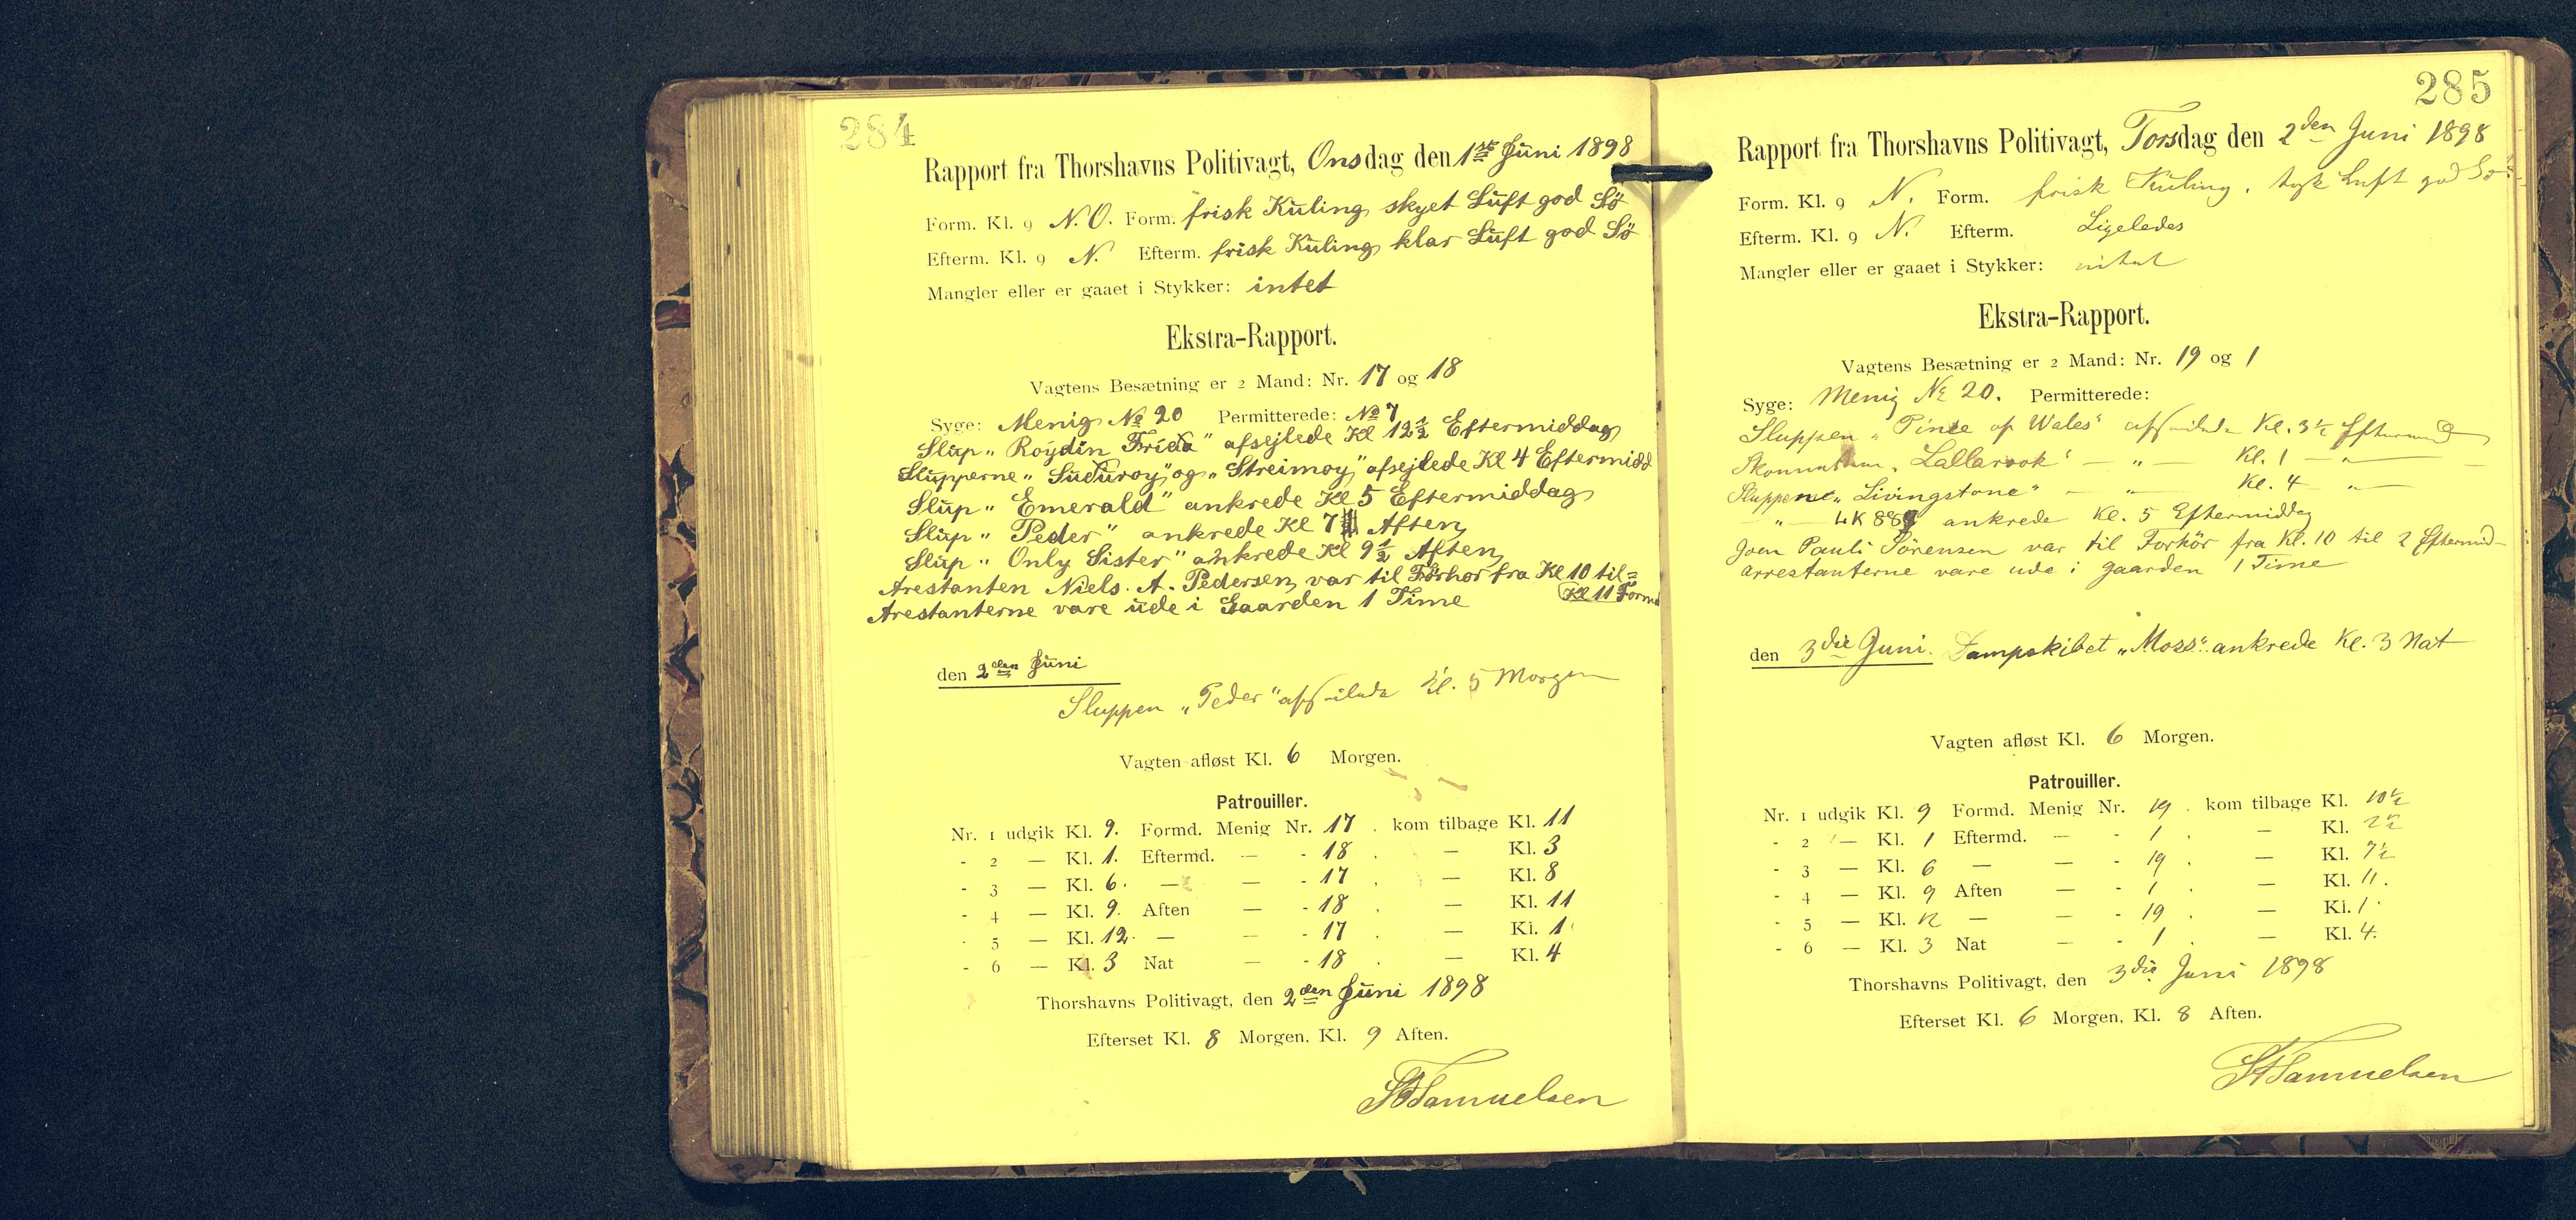 284
Rapport fra Thorshavns Politivagt, Onsdag den 1ste Juni 1898
Form. Kl. 9 N.O. Form. frisk Kuling skyet Luft god Sö
Efterm. Kl. 9 N. Efterm. frisk Kuling klar Luft god Sö
Mangler eller er gaaet i Stykker: intet
Ekstra-Rapport.
Vagtens Besætning er 2 Mand: Nr. 17 og 18
Syge: Menig No 20 Permitterede: No 7
Slup „Roydin Frida" afsejlede Kl 12½ Eftermiddag
Slupperne „Suduroy" og „Streimoy" afsejlede Kl 4 Eftermidd
Slup „Emerald" ankrede Kl 5 Eftermiddag
Slup „Peder" ankrede Kl 7 Aften
Slup „Only Sister" ankrede Kl 9½ Aften
Arestanten Niels. A. Pedersen var til Forhør fra Kl 10 til=
Kl 11 Formd
Arestanterne vare ude i Gaarden 1 Time
den 2den Juni
Sluppen „Peder" afseilede Kl. 5 Morgen
Vagten afløst Kl. 6 Morgen.
Patrouiller.
Nr. 1 udgik Kl. 9. Formd. Menig Nr. 17 . kom tilbage Kl. 11
- 2 — Kl. 1. Eftermd. — - 18 . — Kl. 3
- 3 — Kl. 6. — — - 17 . — Kl. 8
- 4 — Kl. 9. Aften — - 18 . — Kl. 11
- 5 — Kl. 12. — — - 17 . — Kl. 1
- 6 — Kl. 3 Nat — - 18 . — Kl. 4
Thorshavns Politivagt, den 2den Juni 1898
Efterset Kl. 8 Morgen, Kl. 9 Aften.
Samuelsen
285
Rapport fra Thorshavns Politivagt, Torsdag den 2den Juni 1898
Form. Kl. 9 N. Form. frisk Kuling. tyk Luft god Sö.
Efterm. Kl. 9 N. Efterm. Ligeledes
Mangler eller er gaaet i Stykker: intet
Ekstra-Rapport.
Vagtens Besætning er 2 Mand: Nr. 19 og 1
Syge: Menig No 20. Permitterede:
Sluppen „Pince of Wales" afseilede Kl. 3½ Eftermid
Skonnerten „Lallarook" — „ — Kl. 1 — „ —
Sluppen „Livingstone" — „ — Kl. 4 „ —
— „ — LK 889 ankrede Kl. 5 Eftermiddag
Joen Pauli Sörensen var til Forhör fra Kl. 10 til 2 Eftermid-
arrestanterne vare ude i gaarden 1 Time
den 3die Juni. Dampskibet „Moss" ankrede Kl. 3 Nat
Vagten afløst Kl. 6 Morgen.
Patrouiller.
Nr. 1 udgik Kl. 9 Formd. Menig Nr. 19 . kom tilbage Kl. 10½
- 2 — Kl. 1 Eftermd. — - 1 . — Kl. 2½
- 3 — Kl. 6 — — - 19 . — Kl. 7½
- 4 — Kl. 9 Aften — - 1 . — Kl. 11.
- 5 — Kl. 12 — — - 19 . — Kl. 1
- 6 — Kl. 3 Nat — - 1 . — Kl. 4.
Thorshavns Politivagt, den 3die Juni 1898
Efterset Kl. 6 Morgen, Kl. 8 Aften.
Samuelsen